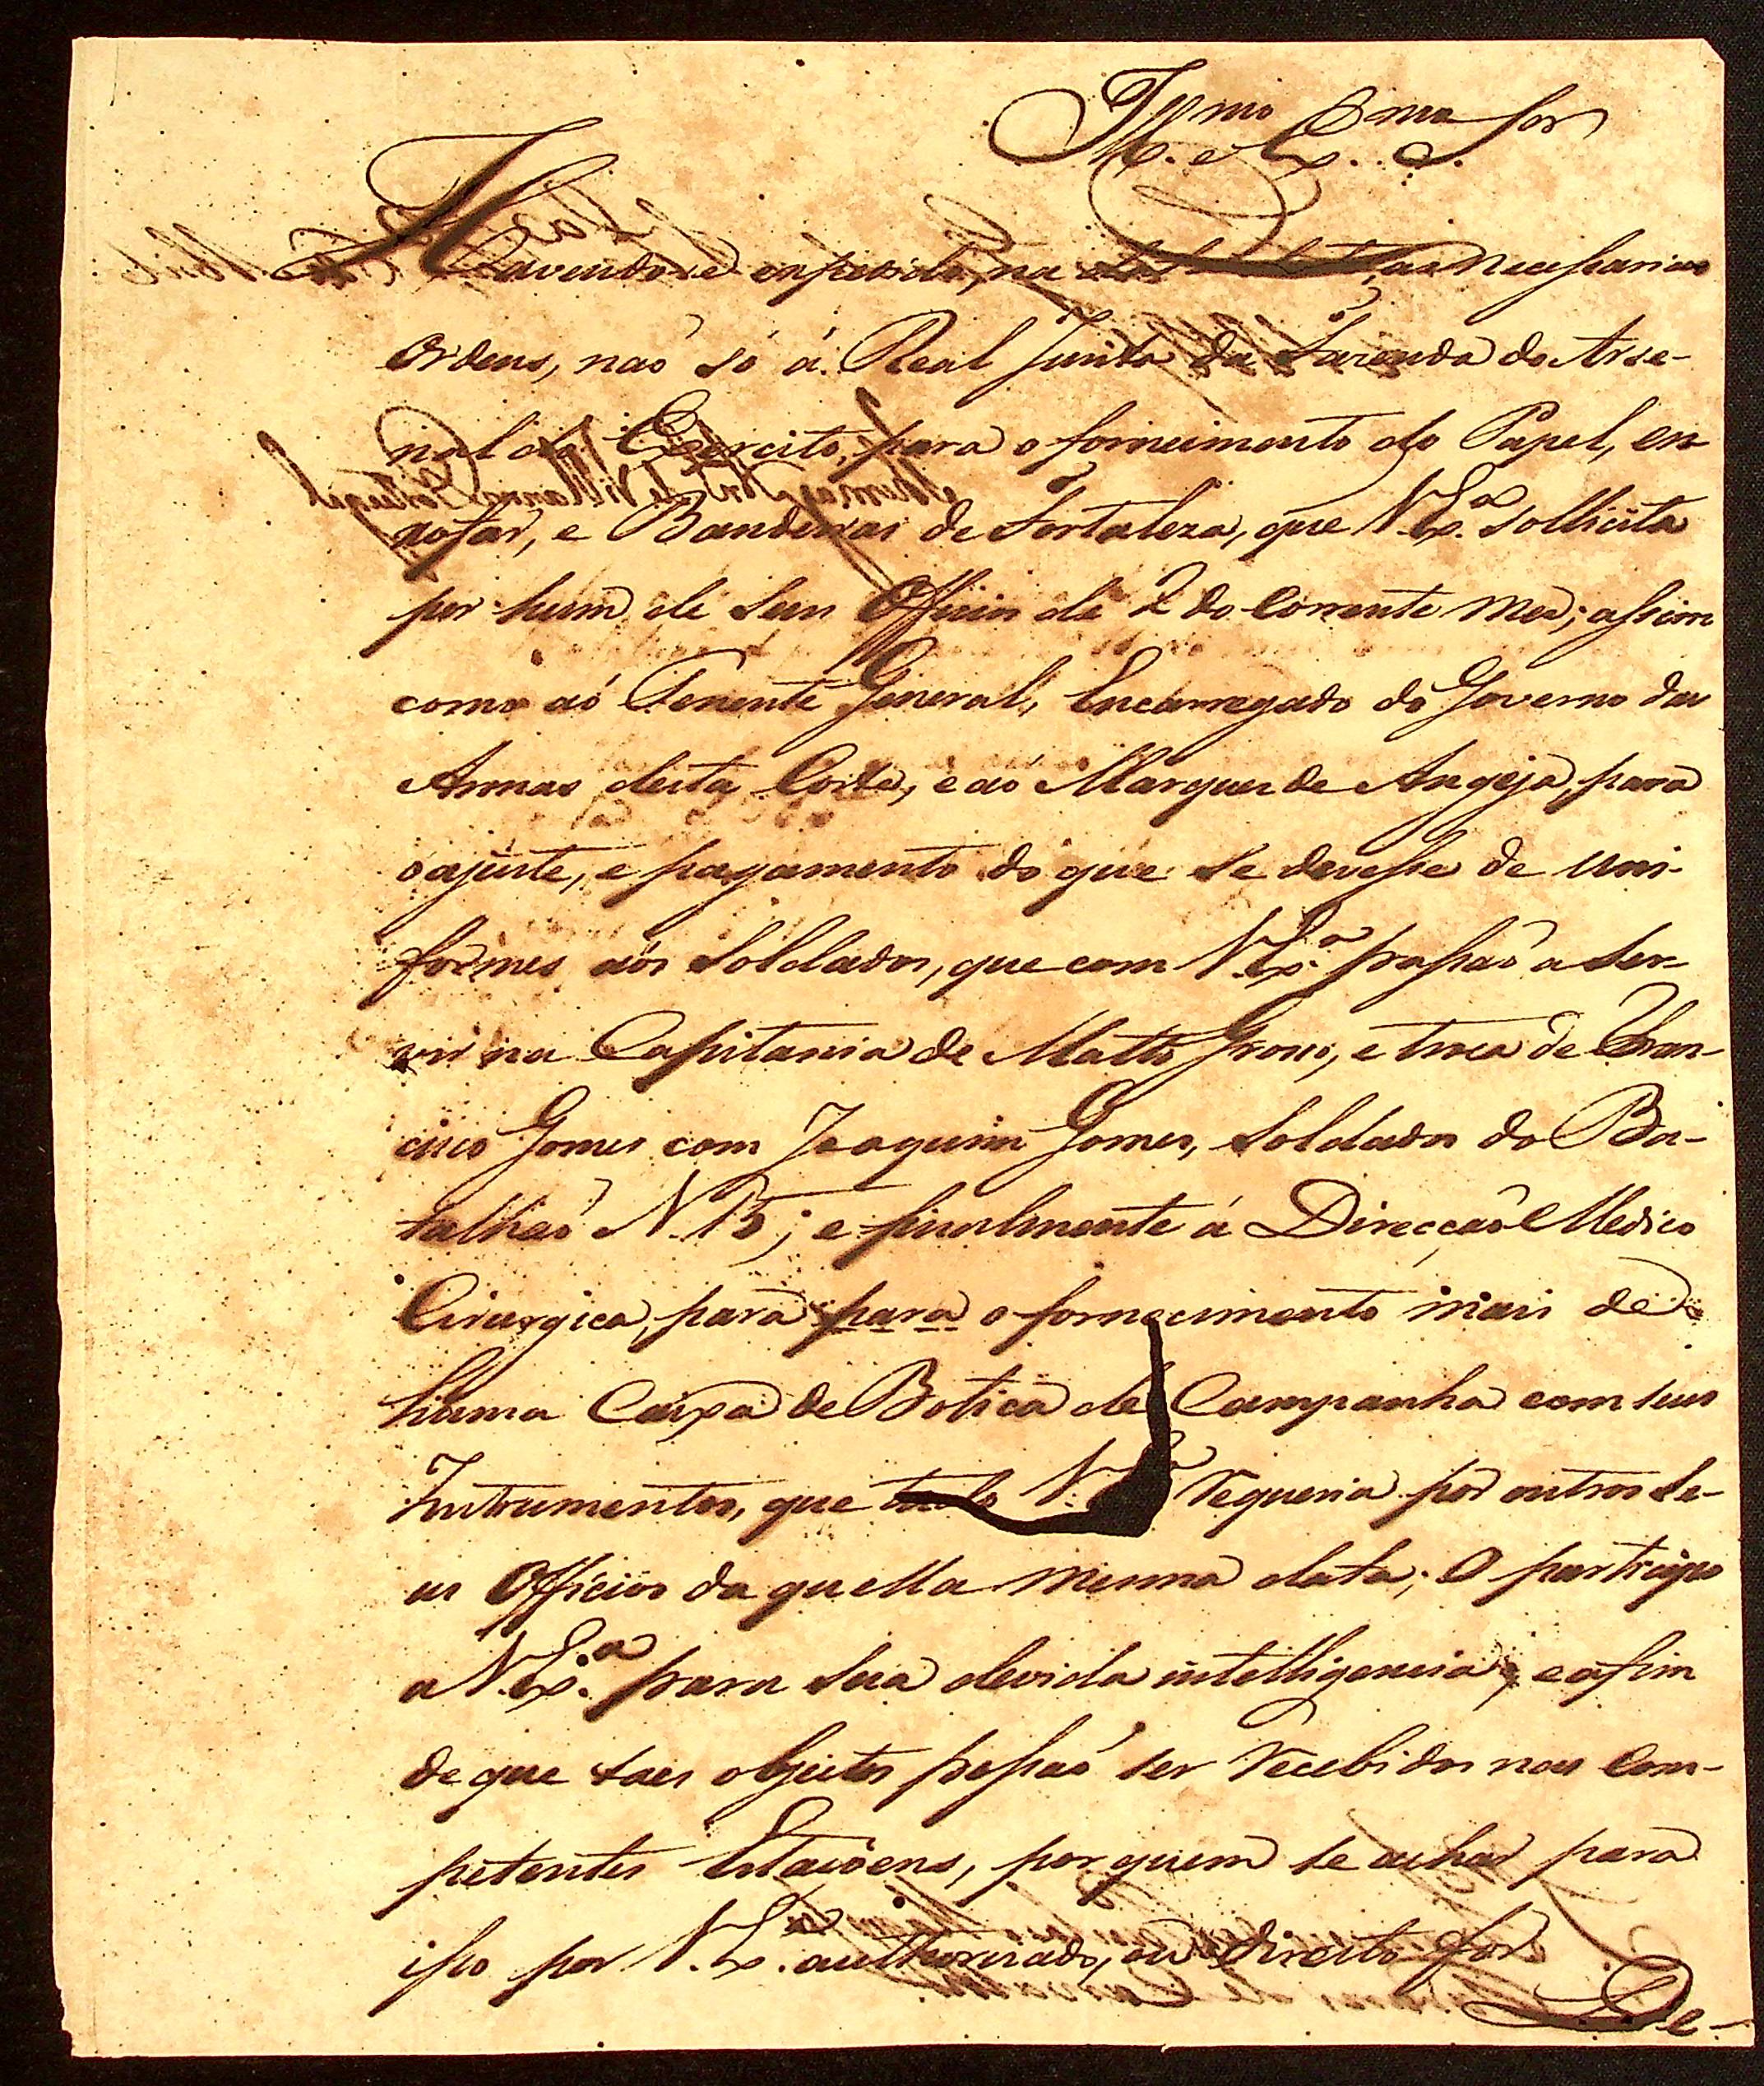 Ill.mo e Ex.mo Snr
Havendo-se expedido, na data de as necessarias
Ordens, naõ só á Real Junta da Fazenda do Arse-
nal do Exercito, para o fornecimento do Papel, en-
xofar, e Bandeiras de Fortaleza, que V. Ex.ª sollicita
por hum de seus Officios de 2 do corrente mez; assim
como aó Tenente General, Encarregado do Governo das
Armas desta Corte, e aó Marquez de Angeja, para
o ajuste, e pagamento do que se devesse de uni-
formes aós Soldados, que com V. Ex.ª passaõ a ser-
vir na Capitania de Matto Grosso, e troca de Fran-
cisco Gomes com Joaquim Gomes, Soldados do Ba-
talhaõ N. 15; e finalmente á Direcçaõ Medico
Cirurgica, para para o fornecimento mais de
huma Caixa de Botica de Campanha com seus
Instrumentos, que tudo V. Ex.ª requeria por outros se-
us Officios da quella mesma data; O participo
a V. Ex.ª para sua devida intelligencia, e afim
de que taes objectos possaõ ser recebidos nas com-
petentes Estaçoens, por quem se achar para
isso por V. Ex.ª authorizado, ou direito for
De-
Thomaz Ant.º de Villanova Portugal